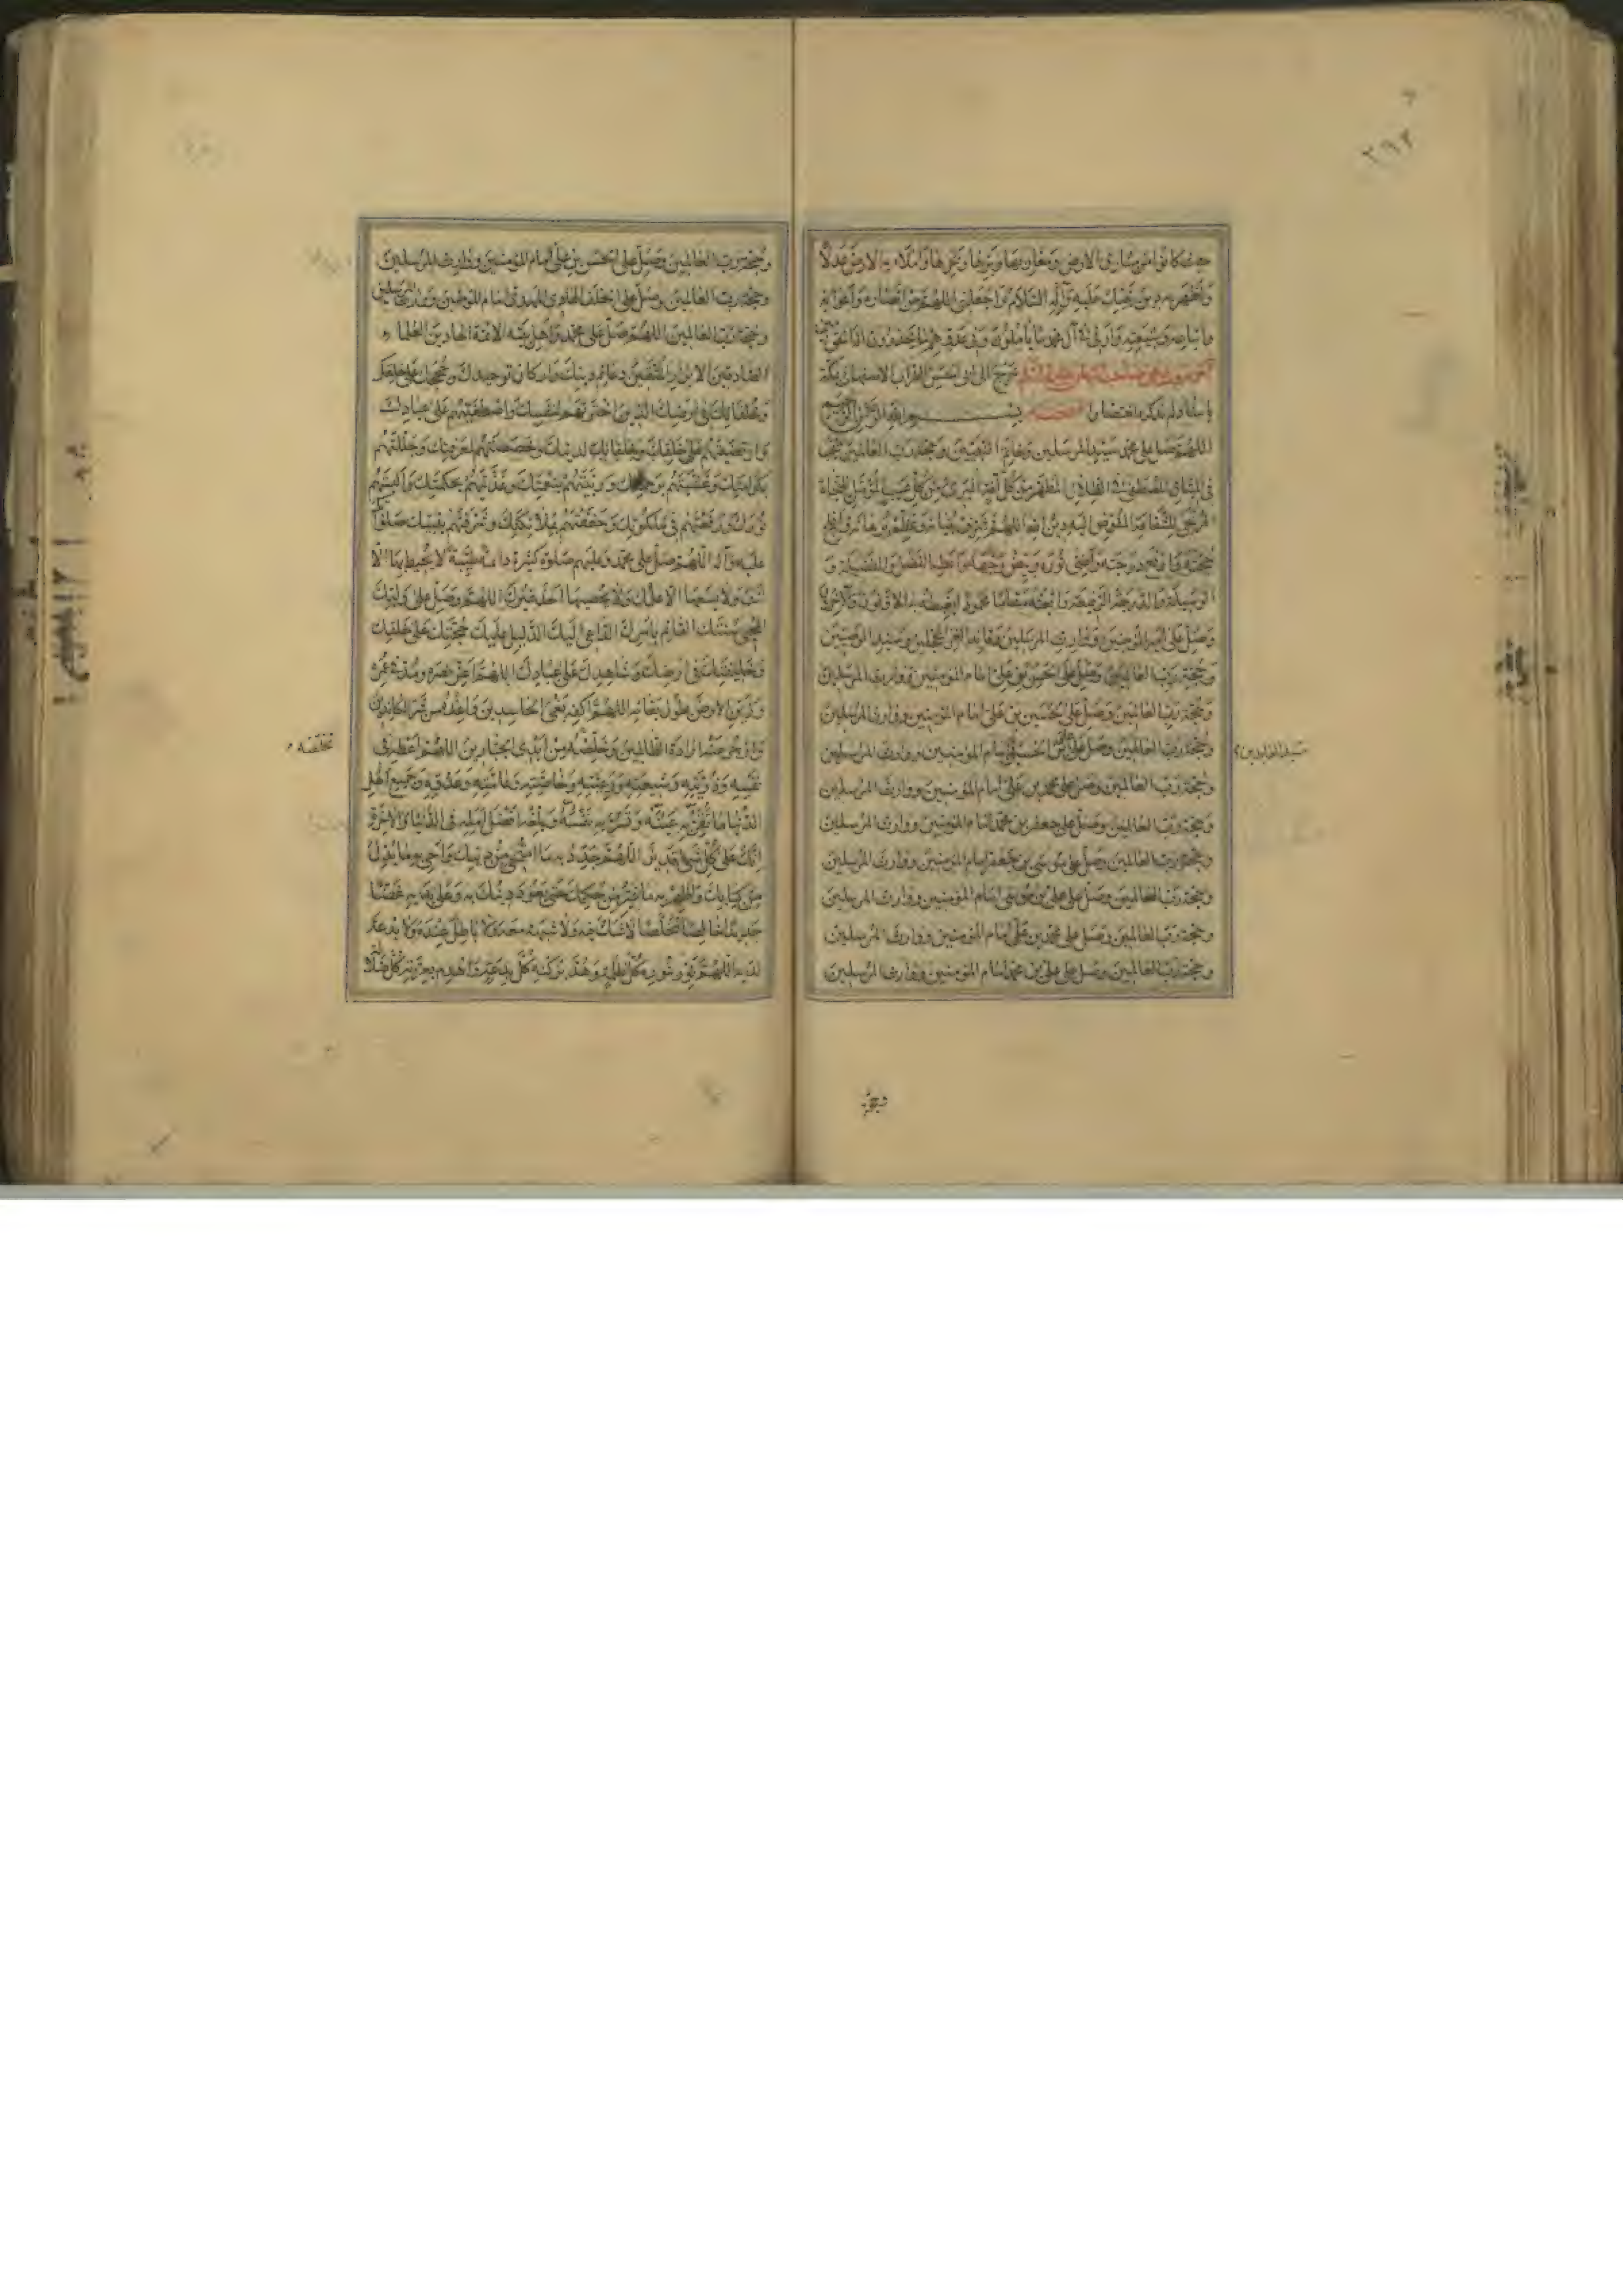 حيث كانوا من مشارق الارض ومغاربها وبرها وبحرها واملاء به الارض عدلا
واظهر به دين نبيك عليه وآله السلام واجعلني اللهم من انصاره واعوانه
واتباعه وشيعته وارني في آل محمد ما يأملون وفي عدوهم ما يحذرون اله الحق آمين
خرج الى ابى الحسن الضراب الاصفهاني بمكة
باسناد لم نذكره اختصارا نسخته بسم الله الرحمن الرحيم
اللهم صل على محمد سيد المرسلين وخاتم النبيين وحجة رب العالمين المنتجب
في الميثاق المصطفى في الظلال المطهر من كل آفة البرئ من كل عيب المؤمل للنجاة
المرتجى للشفاعة المفوض اليه دين الله اللهم شرف بنيانه وعظم برهانه وافلج
حجته وارفع درجته واضئ نوره وبيض وجهه واعطه الفضل والفضيلة و
الوسيلة والدرجة الرفيعة وابعثه مقاما محمودا يغبطه به الاولون والآخرون
وصل على امير المؤمنين ووارث المرسلين وقائد الغر المحجلين وسيد الوصيين
وحجة رب العالمين وصل على الحسن بن علي امام المؤمنين ووارث المرسلين
وحجة رب العالمين وصل على الحسين بن علي امام المؤمنين ووارث المرسلين
وحجة رب العالمين وصل على علي بن الحسين امام المؤمنين ووارث المرسلين
سيد العابدين
وحجة رب العالمين وصل على محمد بن علي امام المؤمنين ووارث المرسلين
وحجة رب العالمين وصل على جعفر بن محمد امام المؤمنين ووارث المرسلين
وحجة رب العالمين وصل على موسى بن جعفر امام المؤمنين ووارث المرسلين
وحجة رب العالمين وصل على علي بن موسى امام المؤمنين ووارث المرسلين
وحجة رب العالمين وصل على محمد بن علي امام المؤمنين ووارث المرسلين
وحجة رب العالمين وصل على علي بن محمد امام المؤمنين ووارث المرسلين
وحجة رب العالمين وصل على الحسن بن علي امام المؤمنين ووارث المرسلين
وحجة رب العالمين وصل على الخلف الهادي المهدي امام المؤمنين ووارث المرسلين
وحجة رب العالمين اللهم صل على محمد واهل بيته الائمة الهادين العلماء
الصادقين الابرار المتقين دعائم دينك واركان توحيدك وحججك على خلقك
وخلفائك في ارضك الذين اخترتهم لنفسك واصطفيتهم على عبادك
وارتضيتهم لدينك وخصصتهم بمعرفتك وجللتهم
بكرامتك وغشيتهم برحمتك وربيتهم بنعمتك وغذيتهم بحكمتك والبستهم
نورك ورفعتهم في ملكوتك وحففتهم بملائكتك وشرفتهم بنبيك صلواتك
عليه وآله اللهم صل على محمد وعليهم صلوة كثيرة دائمة طيبة لا يحيط بها الا
انت ولا يسعها الا علمك ولا يحصيها احد غيرك اللهم وصل على وليك
المحيي سنتك القائم بامرك الداعي اليك الدليل عليك حجتك على خلقك
وخليفتك في ارضك وشاهدك على عبادك اللهم اعز نصره ومد في عمره
وزين الارض بطول بقائه اللهم اكفه بغي الحاسدين واعذه من شر الكائدين
وازجر عنه ارادة الظالمين وخلصه من ايدي الجبارين اللهم اعطه في
نفسه وذريته وشيعته ورعيته وخاصته وعامته وعدوه وجميع اهل
الدنيا ما تقر به عينه وتسر به نفسه وبلغه افضل امله في الدنيا والآخرة
انك على كل شيء قدير اللهم جدد به ما امتحى من دينك واحي به ما بدل
من كتابك واظهر به ما غير من حكمك حتى يعود دينك به وعلى يديه غضا
جديدا خالصا مخلصا لا شك فيه ولا شبهة معه ولا باطل عنده ولا بدعة
لديه اللهم نور بنوره كل ظلمة وهد بركنه كل بدعة واهدم بعزته كل ضلالة
وحجة